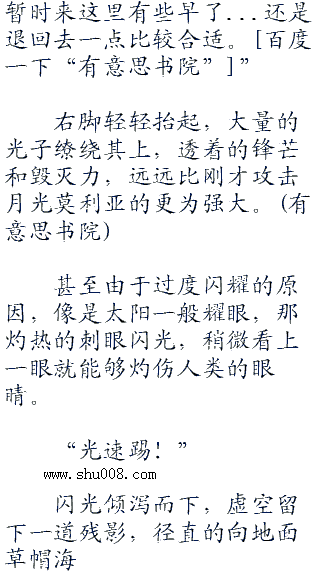 暂时来这里有些早了...还是
退回去一点比较合适。[百度
一下“有意思书院”]”
右脚轻轻抬起，大量的
光子缭绕其上，透着的锋芒
和毁灭力，远远比刚才攻击
月光莫利亚的更为强大。(有
意思书院)
甚至由于过度闪耀的原
因，像是太阳一般耀眼，那
灼热的刺眼闪光，稍微看上
一眼就能够灼伤人类的眼
睛。
“光速踢！”
www.shu008.com
闪光倾泻而下，虚空留
下一道残影，径直的向地面
草帽海